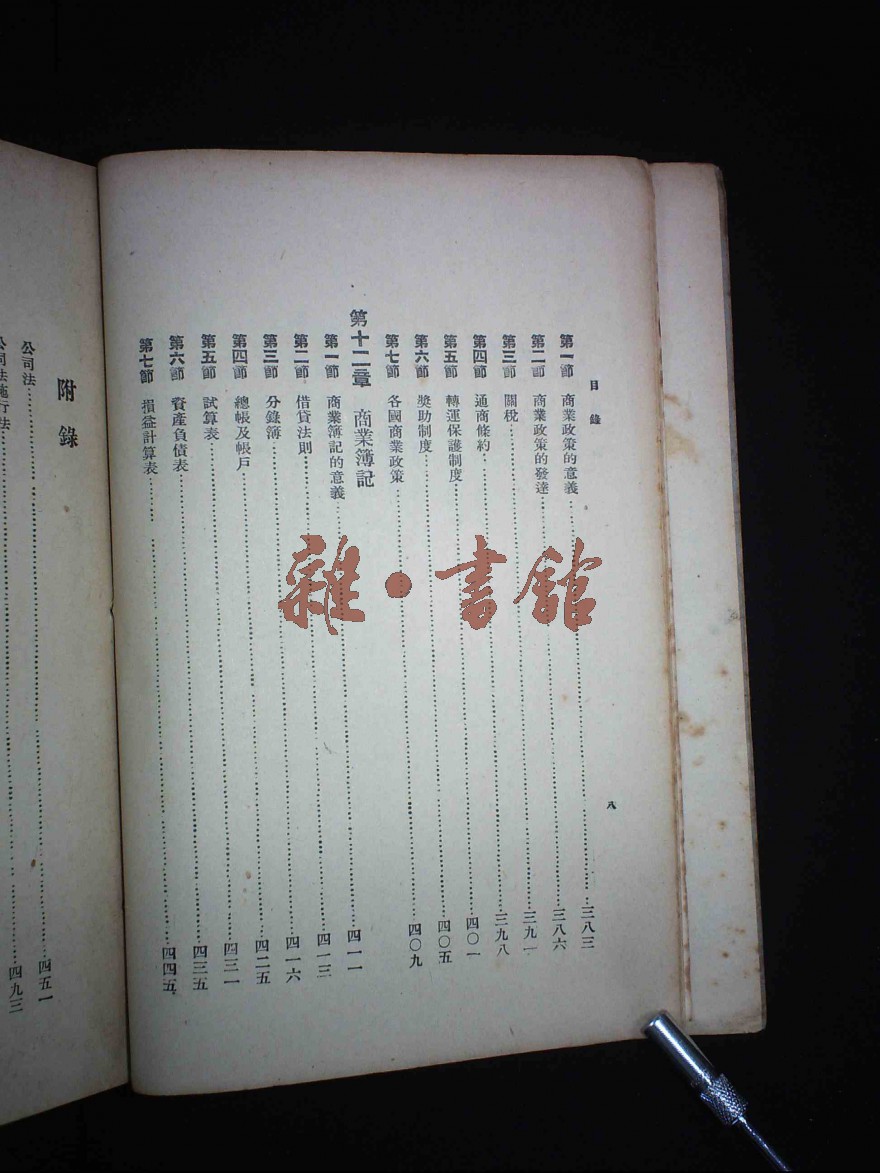 目錄
八
第一節 商業政策的意義……三八三
第二節 商業政策的發達……三八六
第三節 關稅……三九一
第四節 通商條約……三九八
第五節 轉運保護制度……四〇一
第六節 獎助制度……四〇五
第七節 各國商業政策……四〇九
第十二章 商業簿記
第一節 商業簿記的意義……四一一
第二節 借貸法則……四一三
第三節 分錄簿……四一六
第四節 總帳及帳戶……四二五
第五節 試算表……四三一
第六節 資產負債表……四三五
第七節 損益計算表……四四五
附錄
公司法……四五一
公司法施行法……四九三
雜·書館